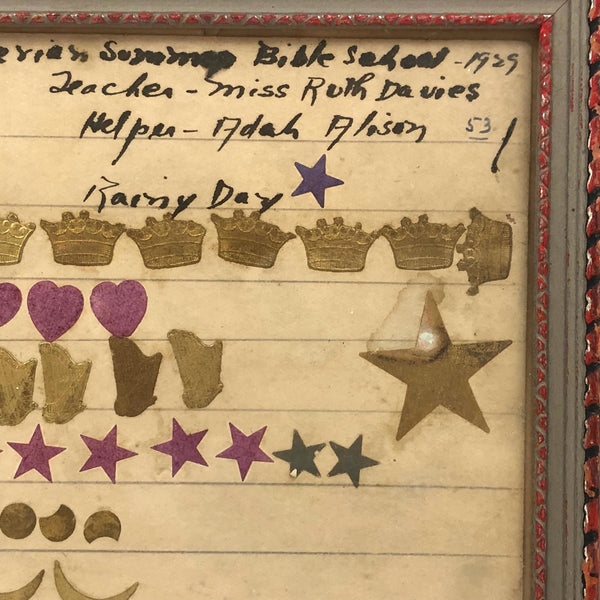 erian Summer Bible School - 1929
Teacher - Miss Ruth Davies
Helper - Adah Alison 53
Rainy Day